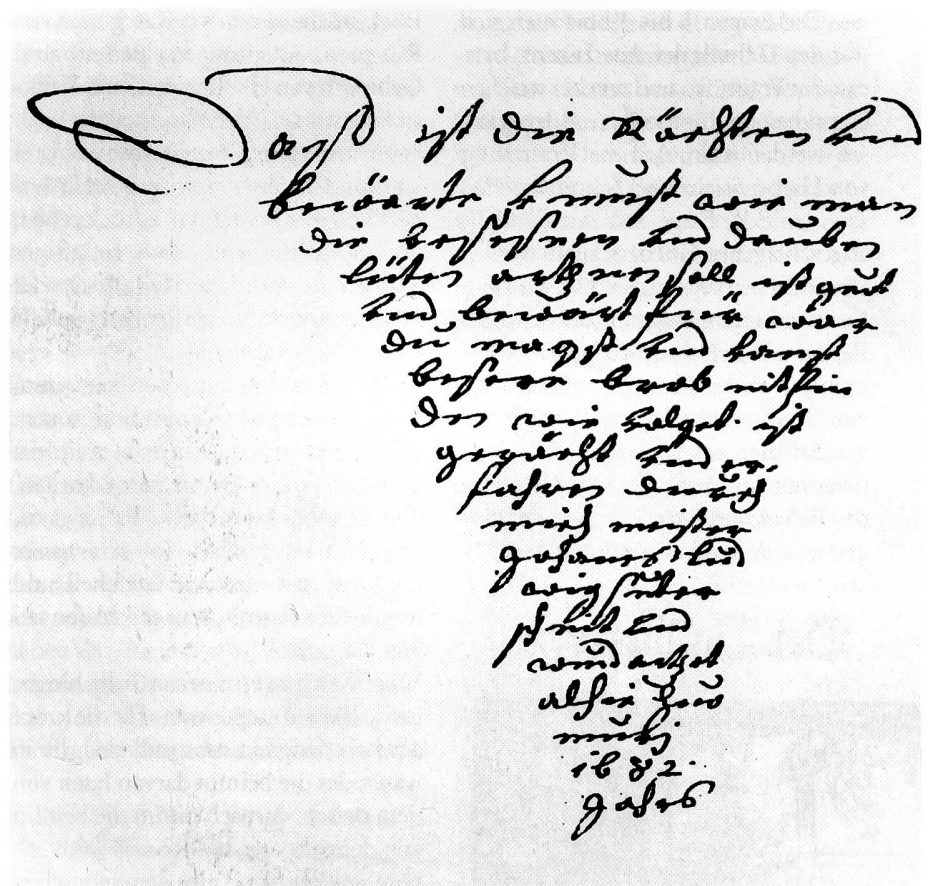 Daß ist die Rächten und
bewärte kunst wie man
die besesnen und dauben
lüten artznen soll ist guot
und bewärt für war
du magst und kanst
besere brob nit fin
den wie volget ist
gerächt und er
fahren durch
mich meister
Johanes Lud
wig suter
schnit und
wund artzet
alhie zuo
mutz
1682
Jahrs